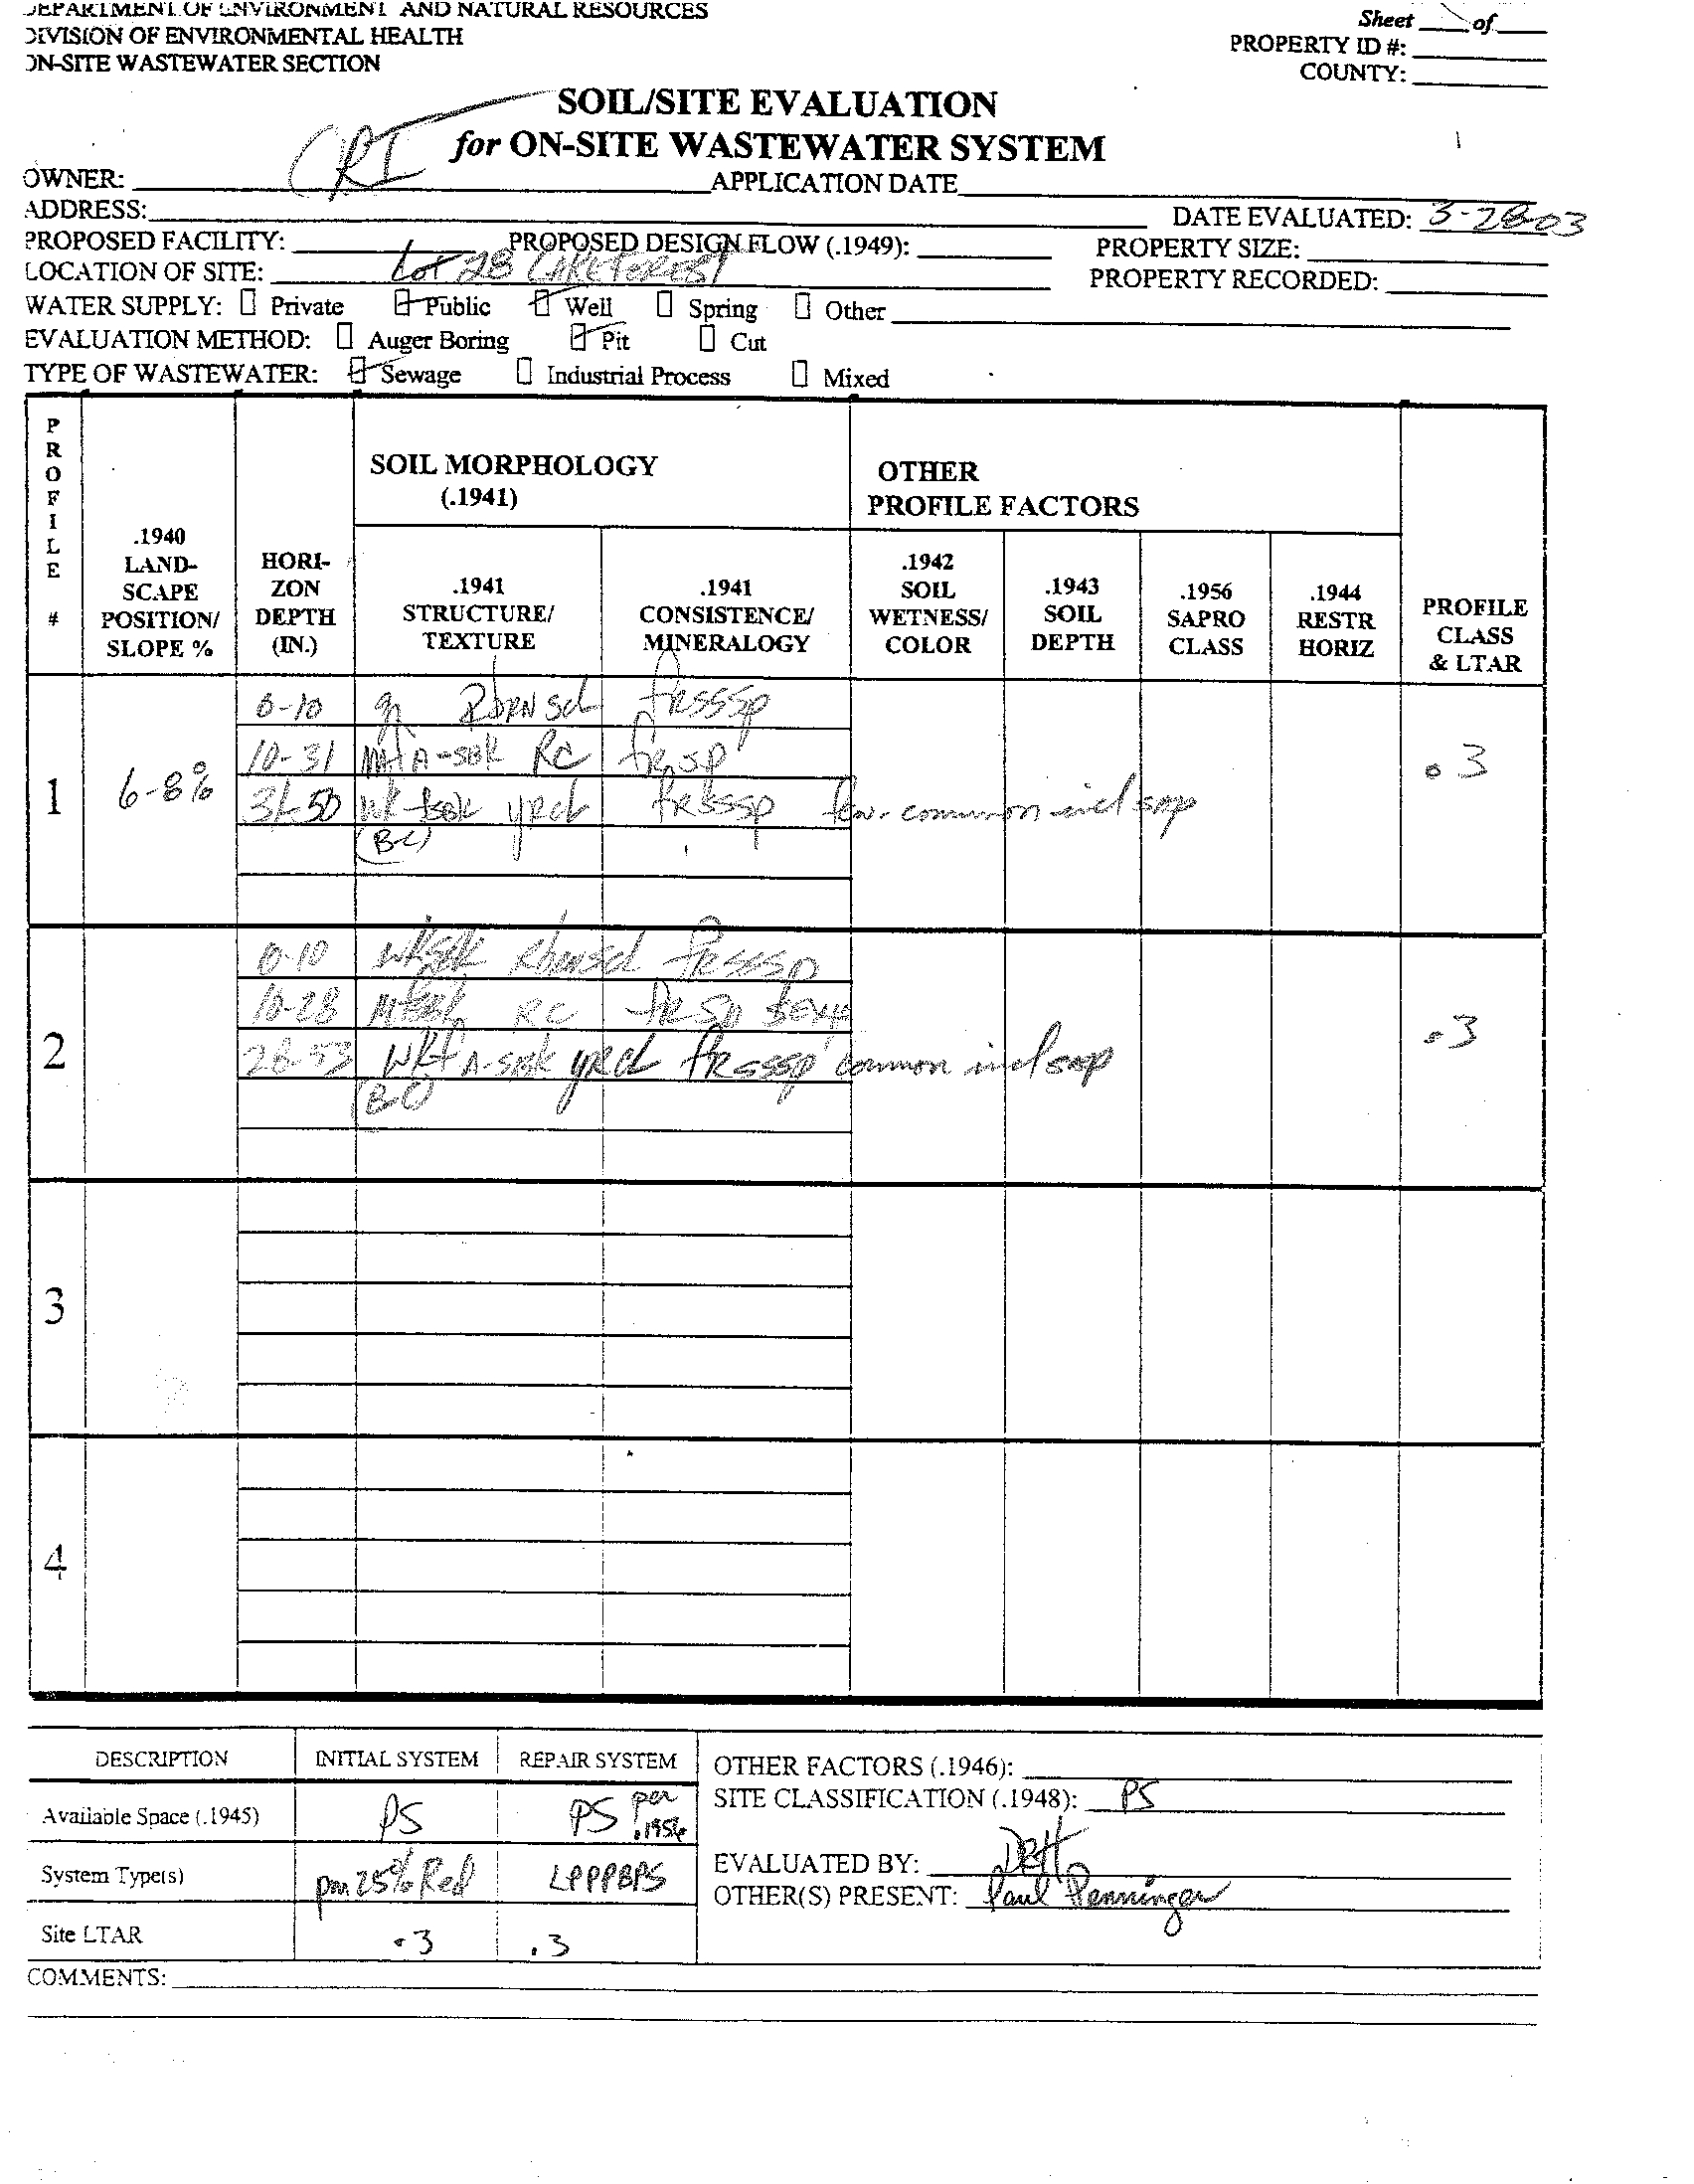 DEPARTMENT OF ENVIRONMENT AND NATURAL RESOURCES
DIVISION OF ENVIRONMENTAL HEALTH
ON-SITE WASTEWATER SECTION
Sheet of
PROPERTY ID #:
COUNTY:
SOIL/SITE EVALUATION
for ON-SITE WASTEWATER SYSTEM
OWNER: CRI APPLICATION DATE
ADDRESS: DATE EVALUATED: 3-28-03
PROPOSED FACILITY: PROPOSED DESIGN FLOW (.1949): PROPERTY SIZE:
LOCATION OF SITE: Lot 28 PROPERTY RECORDED:
WATER SUPPLY: Private Public Well Spring Other
EVALUATION METHOD: Auger Boring Pit Cut
TYPE OF WASTEWATER: Sewage Industrial Process Mixed
PROFILE #
.1940 LAND-SCAPE POSITION/ SLOPE %
HORI-ZON DEPTH (IN.)
SOIL MORPHOLOGY
(.1941)
.1941 STRUCTURE/ TEXTURE
.1941 CONSISTENCE/ MINERALOGY
OTHER
PROFILE FACTORS
.1942 SOIL WETNESS/ COLOR
.1943 SOIL DEPTH
.1956 SAPRO CLASS
.1944 RESTR HORIZ
PROFILE CLASS & LTAR
1 6-8% .3
0-10 gr scl frsssp
10-31 A-SBK RC frsp
31-50 yRcl frsssp few-common incl sap
(B-C)
2 .3
0-10 WKSBK scl frsssp
10-28 RC frsp
28-53 WKf A-SBK yRcl frsssp common incl sap
(B-C)
3
4
DESCRIPTION INITIAL SYSTEM REPAIR SYSTEM
Available Space (.1945) PS PS per .1956
System Type(s) 25% Red LPPPBPS
Site LTAR .3 .3
OTHER FACTORS (.1946):
SITE CLASSIFICATION (.1948): PS
EVALUATED BY:
OTHER(S) PRESENT: Paul Penninger
COMMENTS: